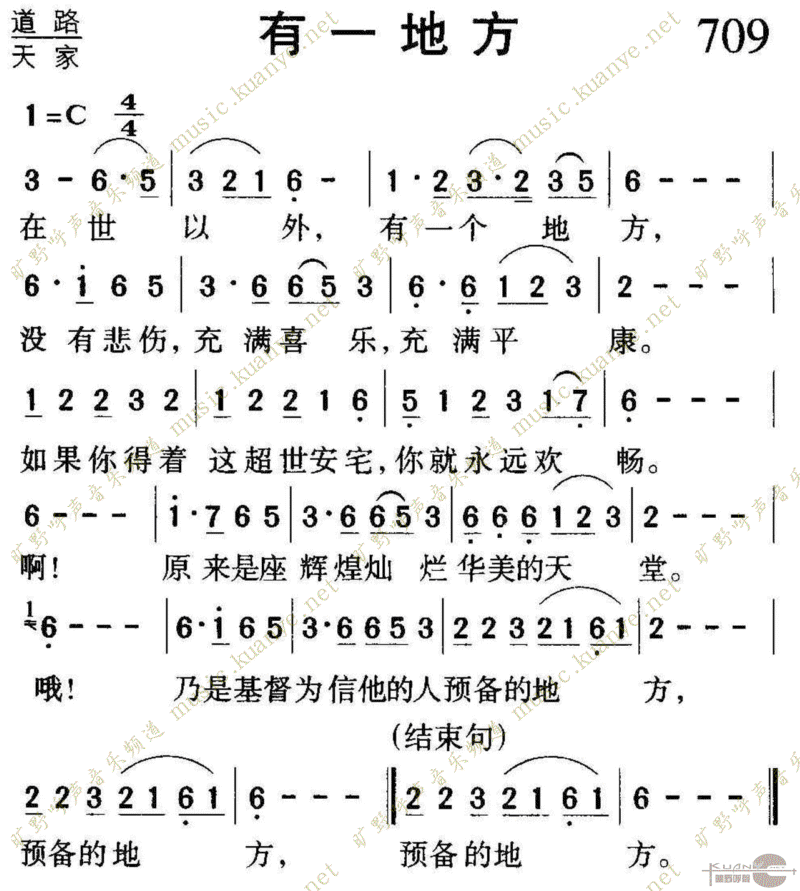 道路 有一地方 709
天家
1=C 4/4
3 - 6·5 | 3 2 1 6 - | 1·2 3·2 3 5 | 6 - - - |
在 世 以 外, 有一个 地 方,
6·i 6 5 | 3·6 6 5 3 | 6·6 1 2 3 | 2 - - - |
没 有悲伤,充 满喜 乐,充 满平 康。
1 2 2 3 2 | 1 2 2 1 6 | 5 1 2 3 1 7 | 6 - - - |
如果你得着 这超世安宅,你就永远欢 畅。
6 - - - | i·7 6 5 | 3·6 6 5 3 | 6 6 6 1 2 3 | 2 - - - |
啊! 原 来是座 辉煌灿 烂华美的天 堂。
1 6 - - - | 6·i 6 5 | 3·6 6 5 3 | 2 2 3 2 1 6 1 | 2 - - - |
哦! 乃是基督为信他的人预备的地 方,
(结束句)
2 2 3 2 1 6 1 | 6 - - - ‖ 2 2 3 2 1 6 1 | 6 - - - ‖
预备的地 方, 预备的地 方。
旷野呼声音乐频道 music.kuanye.net